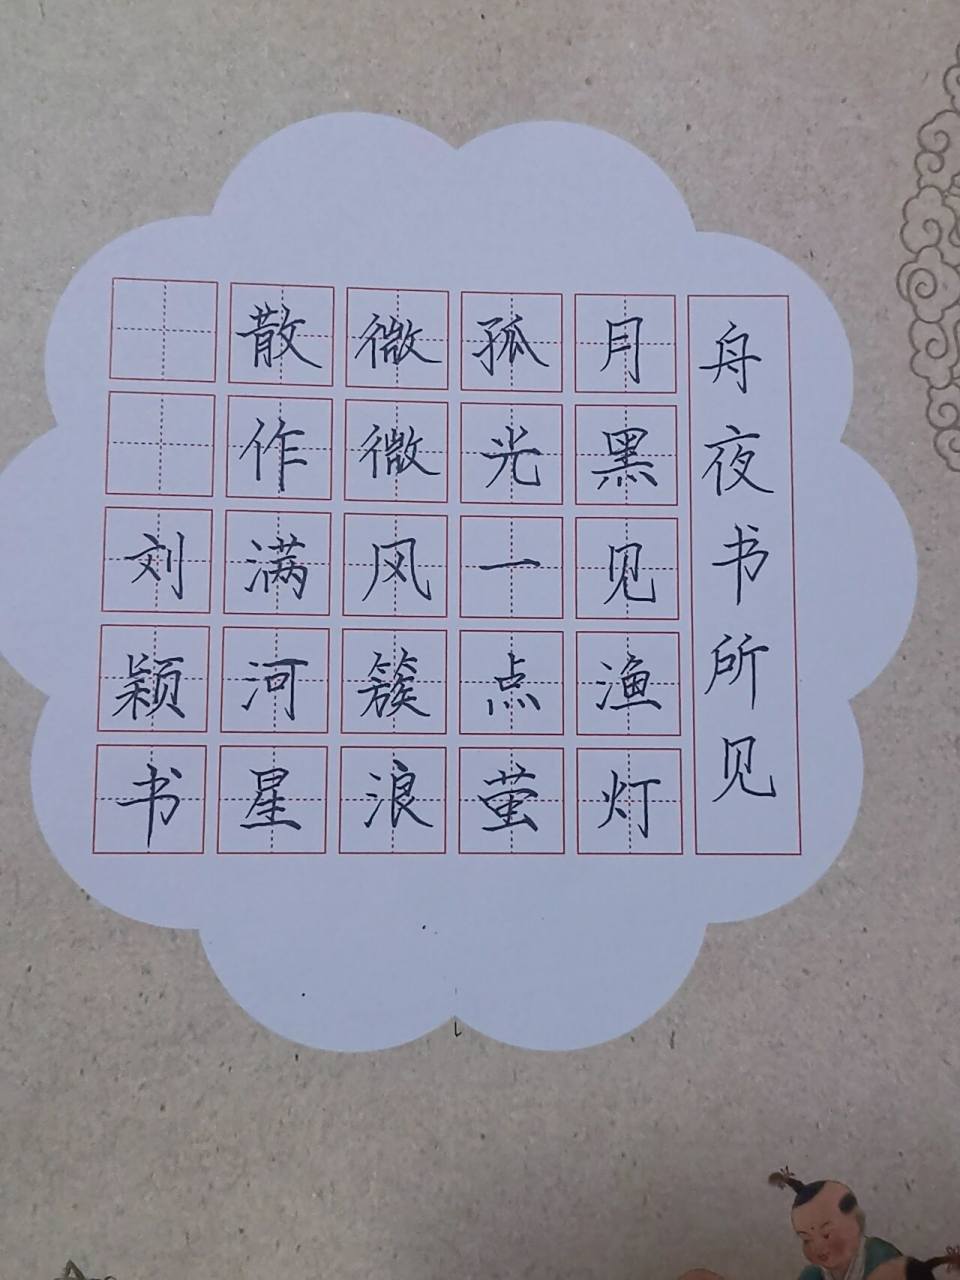 舟夜书所见
月黑见渔灯
孤光一点萤
微微风簇浪
散作满河星
刘颖书